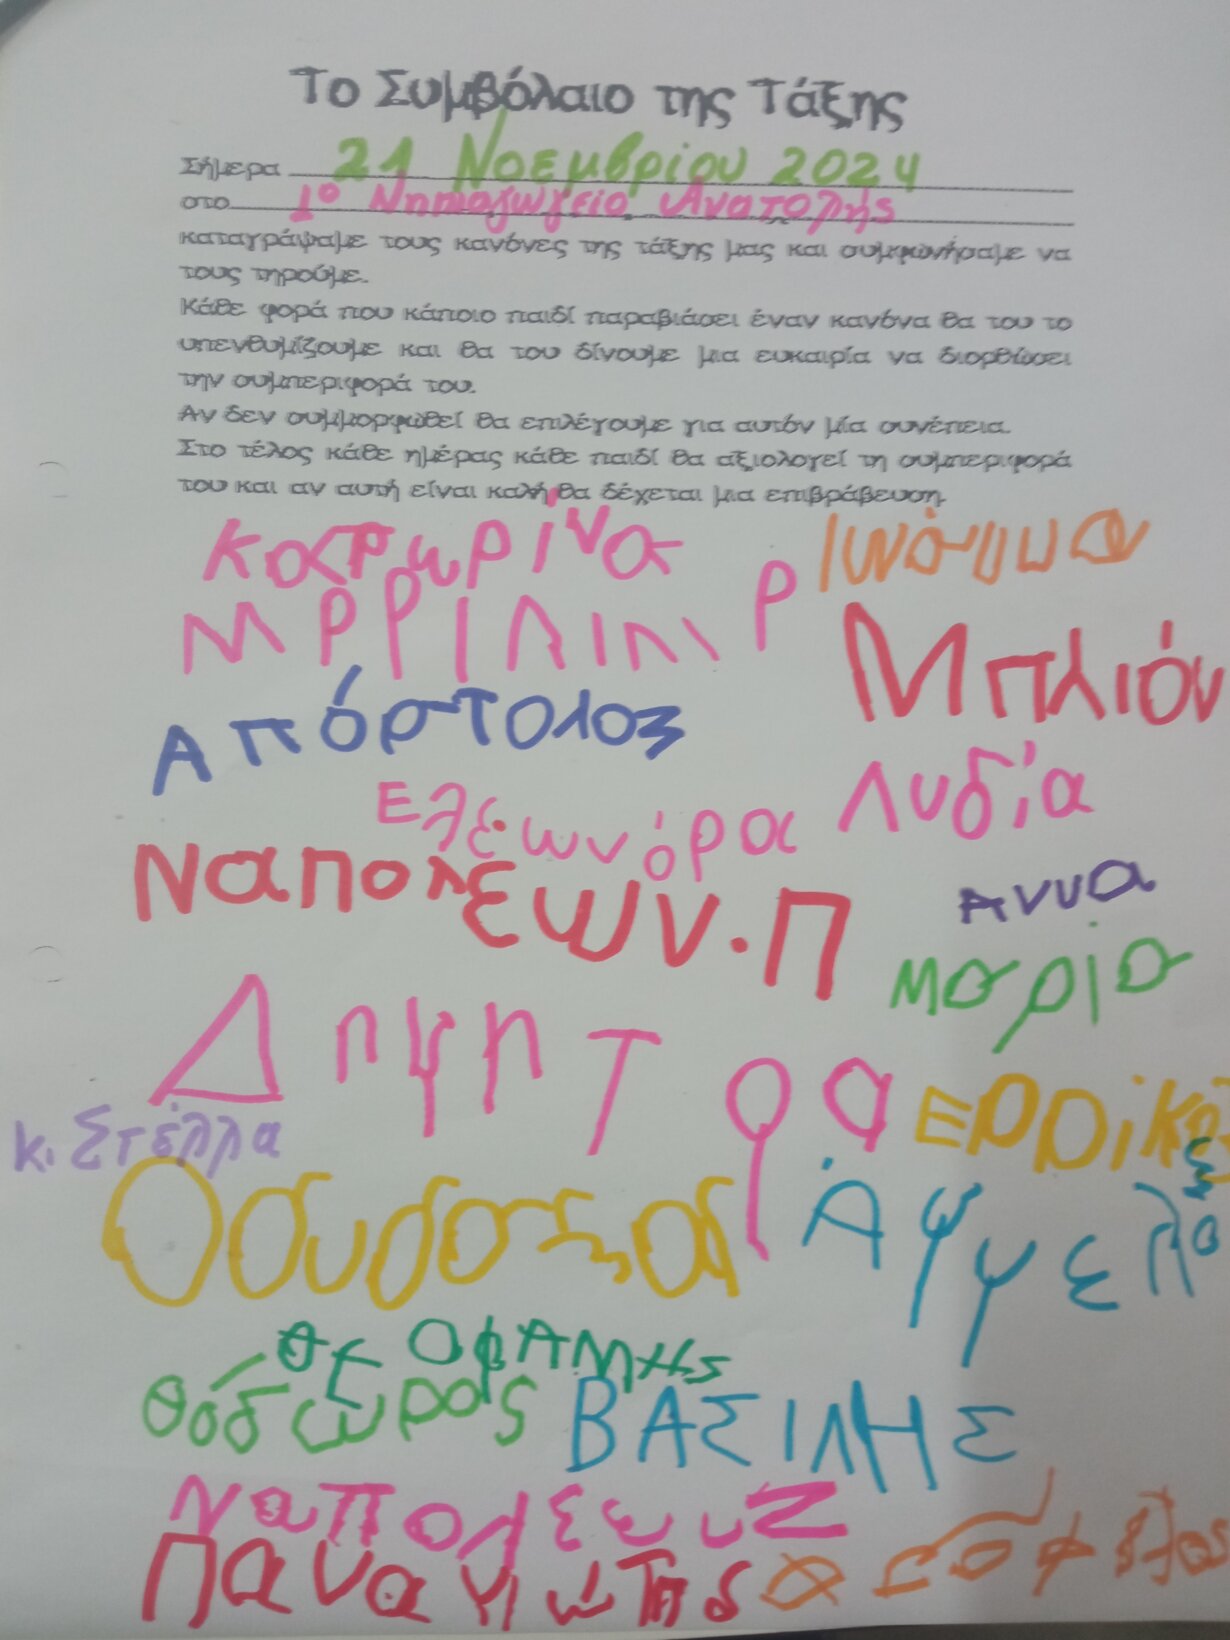 Το Συμβόλαιο της Τάξης
Σήμερα 21 Νοεμβρίου 2024
στο 1º Νηπιαγωγείο Ανατολής
καταγράψαμε τους κανόνες της τάξης μας και συμφωνήσαμε να
τους τηρούμε.
Κάθε φορά που κάποιο παιδί παραβιάσει έναν κανόνα θα του το
υπενθυμίζουμε και θα του δίνουμε μια ευκαιρία να διορθώσει
την συμπεριφορά του.
Αν δεν συμμορφωθεί θα επιλέγουμε για αυτόν μία συνέπεια.
Στο τέλος κάθε ημέρας κάθε παιδί θα αξιολογεί τη συμπεριφορά
του και αν αυτή είναι καλή θα δέχεται μια επιβράβευση.
Μπλιόν
Απόρτολος
Ελεωνόρα Λυδία
Ναπολεων.Π Αννα
Μαρία
κ. Στέλλα
Θεοφΐανης
Θόδωρος ΒΑΣΙΛΗΣ
Ναπολεων
Παναγιώτης